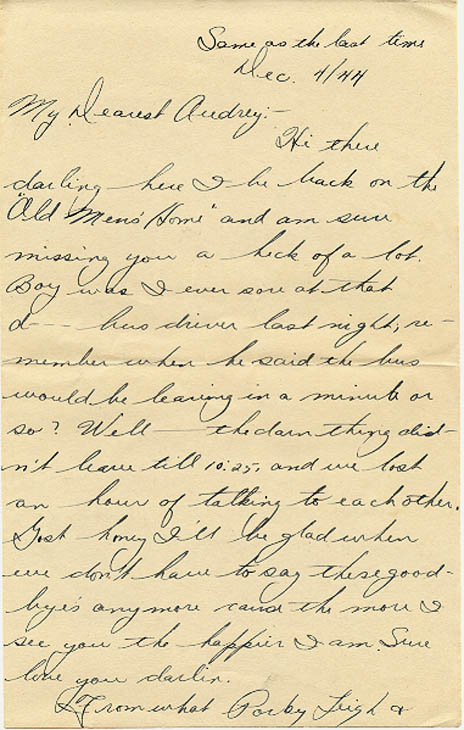 Same as the last time
Dec. 4/44
My Dearest Audrey:-
Hi there
darling - here I be back on the
"Old Mens' Home" and am sure
missing you a heck of a lot.
Boy was I ever sore at that
d--- bus driver last night, re-
member when he said the bus
would be leaving in a minute or
so? Well — the darn thing did-
n't leave till 10.25, and we lost
an hour of talking to each other.
Gosh honey I'll be glad when
we don't have to say these good-
bye's anymore cause the more I
see you the happier I am. Sure
love you darlin.
From what Porky Leigh &